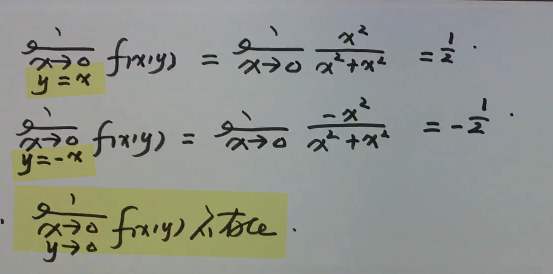 lim x→0 y=x f(x,y) = lim x→0 x²/(x²+x²) = 1/2.
lim x→0 y=-x f(x,y) = lim x→0 -x²/(x²+x²) = -1/2.
lim x→0 y→0 f(x,y) 不存在.